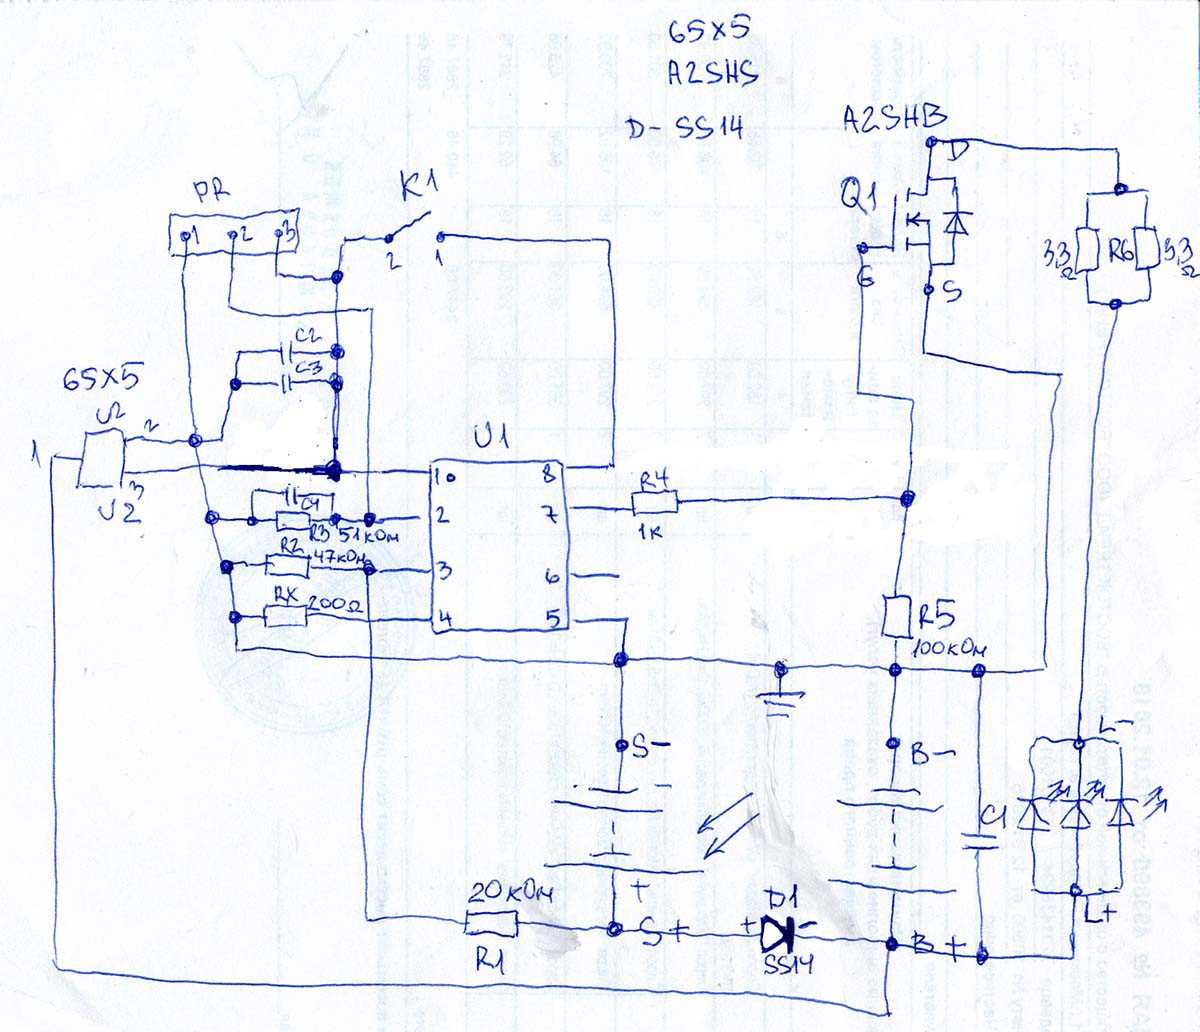 65X5
A2SHS
D- SS14
A2SHB
D
PR
K1
1 2 3
2 1
Q1
G
S
3,3 Ω
R6
3,3 Ω
C2
C3
65X5
U2
1
2
3
U2
U1
1
8
C4
R3 51кОм
2
7
R4
1К
R2
47кОм
3
6
RX
200Ω
4
5
R5
100кОм
S-
B-
L-
-
C1
+
20кОм
R1
S+
+
D1
-
SS14
B+
L+